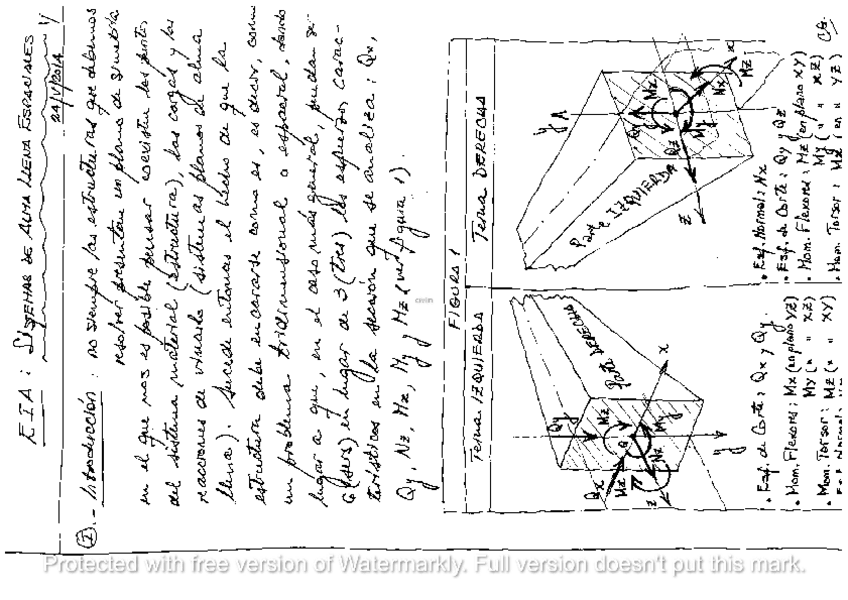 EIA : SISTEMAS DE ALMA LLENA ESPACIALES
29/V/2014
I.- Introducción : no siempre las estructuras que debemos
resolver presentan un plano de simetría
en el que nos es posible pensar coexisten los puntos
del sistema material (estructura), las cargas y las
reacciones de vínculo (sistemas planos de alma
llena). Sucede entonces el hecho de que la
estructura debe encararse como es, es decir, como
un problema tridimensional o espacial, dando
lugar a que, en el caso más general, puedan se-
6 (seis) en lugar de 3 (tres) los esfuerzos carac-
terísticos en la sección que se analiza : Qx,
Qy, Nz, Mx, My y Mz (ver figura 1).
FIGURA 1
Terna IZQUIERDA
Parte DERECHA
Qy
Mz
Qx
Mx
My
Nz
x
y
z
• Esf. de Corte : Qx y Qy.
• Mom. Flexores : Mx (en plano YZ)
My ( " " XZ)
• Mom. Torsor : Mz ( " " XY)
Terna DERECHA
Parte IZQUIERDA
y
Qy
Mx
My
Qz
Nx
Mz
x
z
CG.
• Esf. Normal : Nx
• Esf. de Corte : Qy y Qz
• Mom. Flexores : Mz (en plano XY)
My ( " " XZ)
• Mom. Torsor : Mx (en " YZ)
Protected with free version of Watermarkly. Full version doesn't put this mark.